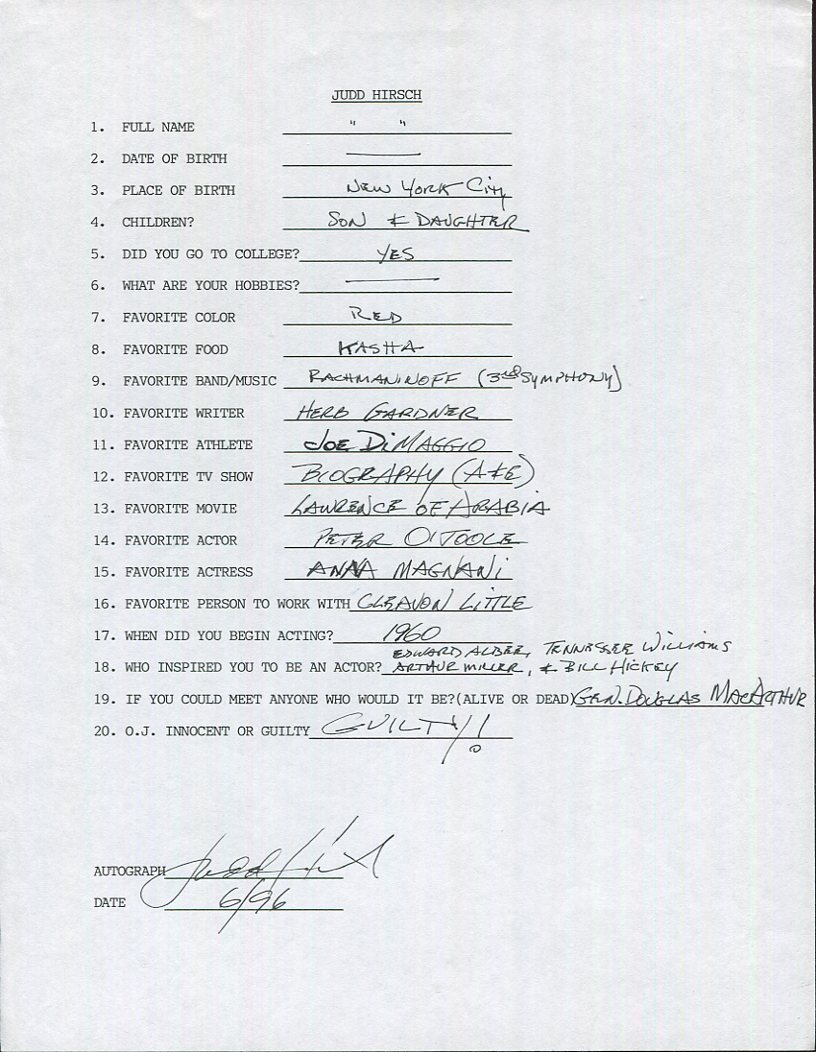 JUDD HIRSCH
1. FULL NAME " "
2. DATE OF BIRTH —
3. PLACE OF BIRTH NEW YORK CITY
4. CHILDREN? SON & DAUGHTER
5. DID YOU GO TO COLLEGE? YES
6. WHAT ARE YOUR HOBBIES? —
7. FAVORITE COLOR RED
8. FAVORITE FOOD KASHA
9. FAVORITE BAND/MUSIC RACHMANINOFF (3rd SYMPHONY)
10. FAVORITE WRITER HERB GARDNER
11. FAVORITE ATHLETE JOE DiMAGGIO
12. FAVORITE TV SHOW BIOGRAPHY (A&E)
13. FAVORITE MOVIE LAWRENCE OF ARABIA
14. FAVORITE ACTOR PETER O'TOOLE
15. FAVORITE ACTRESS ANNA MAGNANI
16. FAVORITE PERSON TO WORK WITH CLEAVON LITTLE
17. WHEN DID YOU BEGIN ACTING? 1960
EDWARD ALBEE, TENNESSEE WILLIAMS
18. WHO INSPIRED YOU TO BE AN ACTOR? ARTHUR MILLER, & BILL HICKEY
19. IF YOU COULD MEET ANYONE WHO WOULD IT BE?(ALIVE OR DEAD) GEN. DOUGLAS MACARTHUR
20. O.J. INNOCENT OR GUILTY GUILTY!
AUTOGRAPH Judd Hirsch
DATE 6/96